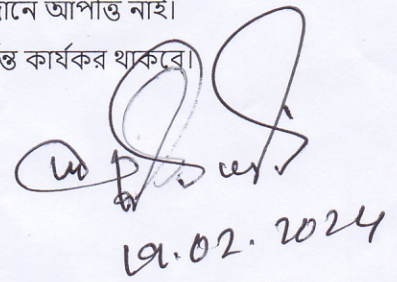 দানে আপত্তি নাই।
ন্ত কার্যকর থাকবে।
19.02.2024